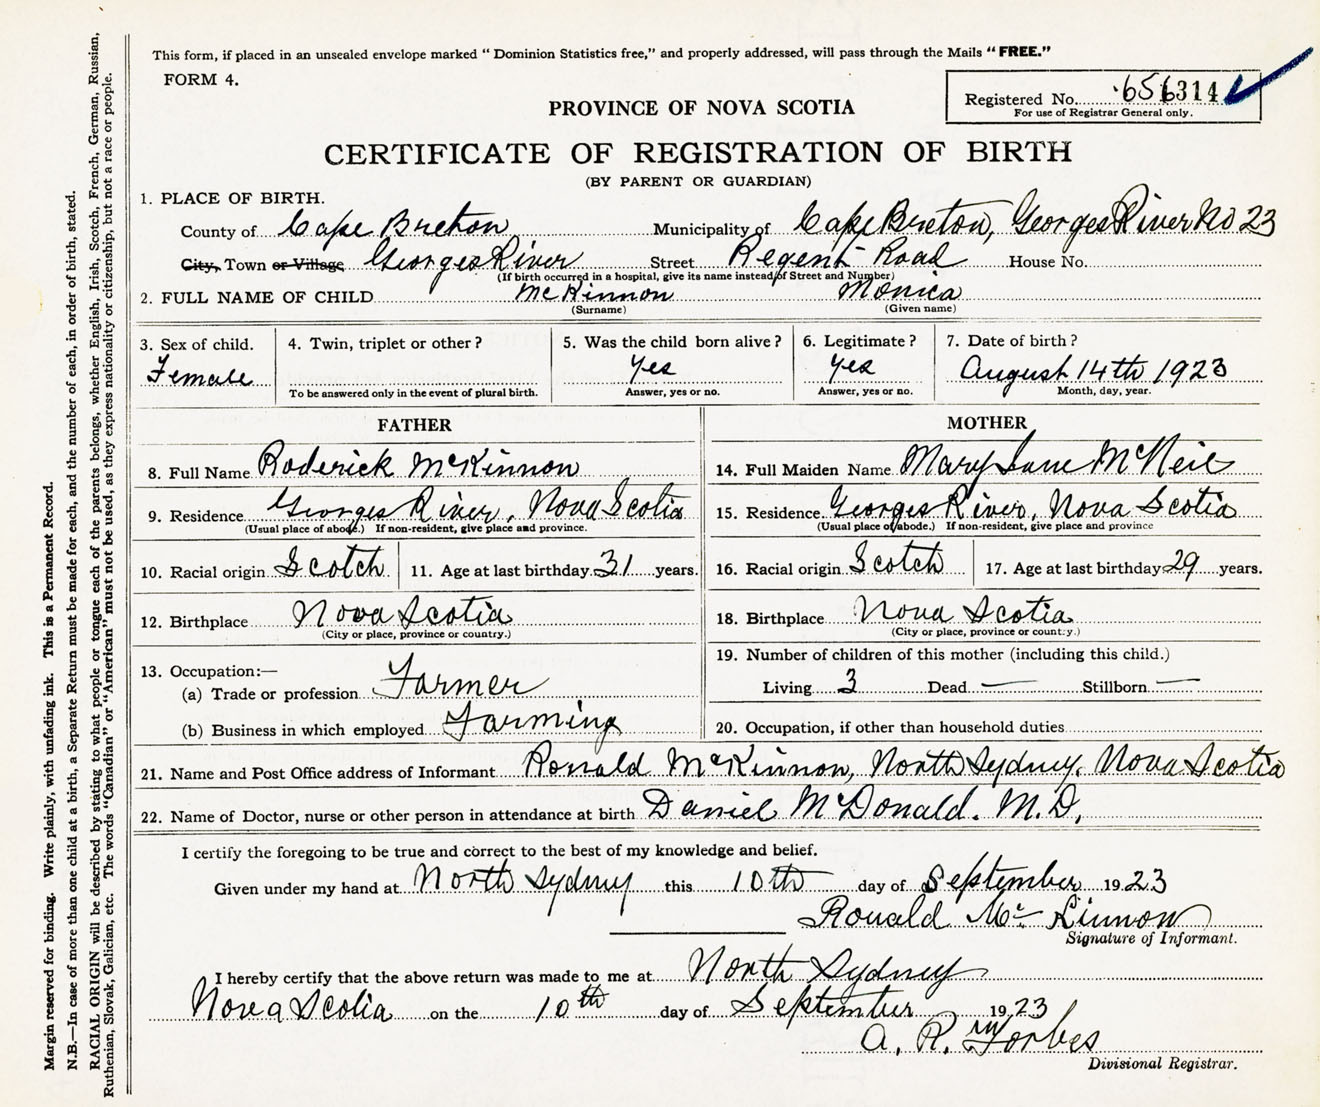 This form, if placed in an unsealed envelope marked "Dominion Statistics free," and properly addressed, will pass through the Mails "FREE."
FORM 4.
Registered No. 656314
For use of Registrar General only.
PROVINCE OF NOVA SCOTIA
CERTIFICATE OF REGISTRATION OF BIRTH
(BY PARENT OR GUARDIAN)
1. PLACE OF BIRTH.
County of Cape Breton Municipality of Cape Breton, Georges River No 23
City, Town or Village Georges River Street Regent Road House No.
(If birth occurred in a hospital, give its name instead of Street and Number)
2. FULL NAME OF CHILD McKinnon Monica
(Surname) (Given name)
3. Sex of child. 4. Twin, triplet or other? 5. Was the child born alive? 6. Legitimate? 7. Date of birth?
Female Yes Yes August 14th 1923
To be answered only in the event of plural birth. Answer, yes or no. Answer, yes or no. Month, day, year.
FATHER
8. Full Name Roderick McKinnon
9. Residence Georges River, Nova Scotia
(Usual place of abode.) If non-resident, give place and province.
10. Racial origin Scotch 11. Age at last birthday 31 years.
12. Birthplace Nova Scotia
(City or place, province or country.)
13. Occupation:—
(a) Trade or profession Farmer
(b) Business in which employed Farming
MOTHER
14. Full Maiden Name Mary Jane McNeil
15. Residence Georges River, Nova Scotia
(Usual place of abode.) If non-resident, give place and province
16. Racial origin Scotch 17. Age at last birthday 29 years.
18. Birthplace Nova Scotia
(City or place, province or country.)
19. Number of children of this mother (including this child.)
Living 3 Dead — Stillborn —
20. Occupation, if other than household duties
21. Name and Post Office address of Informant Ronald McKinnon, North Sydney, Nova Scotia
22. Name of Doctor, nurse or other person in attendance at birth Daniel McDonald. M.D.
I certify the foregoing to be true and correct to the best of my knowledge and belief.
Given under my hand at North Sydney this 10th day of September 1923
Ronald McKinnon
Signature of Informant.
I hereby certify that the above return was made to me at North Sydney
Nova Scotia on the 10th day of September 1923
A. R. Forbes
Divisional Registrar.
Margin reserved for binding. Write plainly, with unfading ink. This is a Permanent Record.
N.B.—In case of more than one child at a birth, a Separate Return must be made for each, and the number of each, in order of birth, stated.
RACIAL ORIGIN will be described by stating to what people or tongue each of the parents belongs, whether English, Irish, Scotch, French, German, Russian,
Ruthenian, Slovak, Galician, etc. The words "Canadian" or "American" must not be used, as they express nationality or citizenship, but not a race or people.